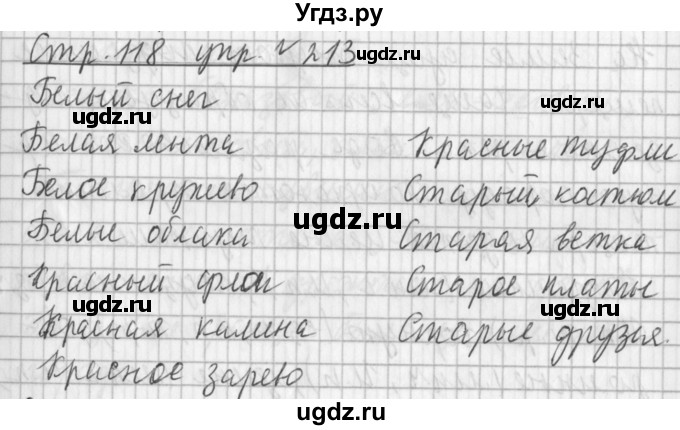 Угдз.ру
Стр. 118 упр. √ 213
ugdz.ru
Белый снег
ugdz.ru
ugdz.ru
Белая лента
Белое кружево
ugdz.ru
Белые облака
Красный флаг
ugdz.ru
Красная калина
ugdz.ru
Красное зарево
Красные туфли
Старый костюм
ugdz.ru
Старая ветка
Старое платье
ugdz.ru
Старые друзья.
ugdz.ru